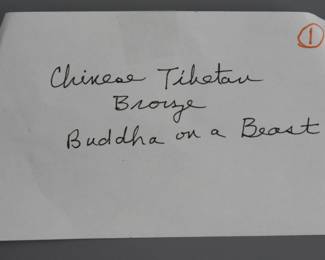 1
Chinese Tibetan
Bronze
Buddha on a Beast